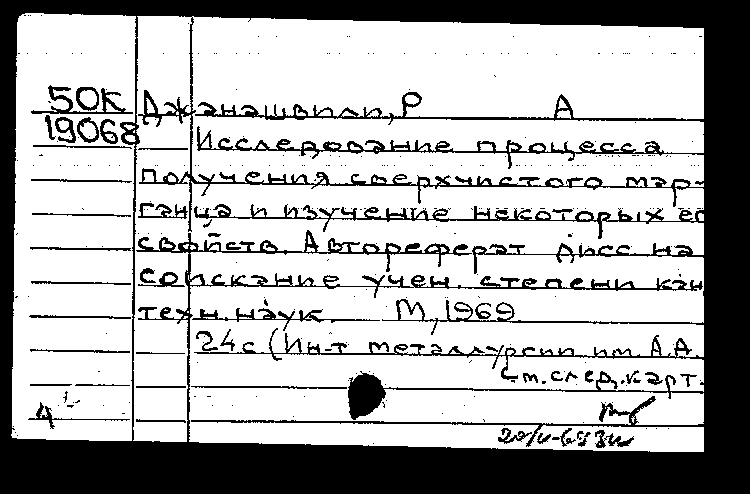 50К Джанашвили, Р А
19068 Исследование процесса
получения сверхчистого мар-
ганца и изучение некоторых ес
свойств. Автореферат дисс на
соискание учен. степени кан
техн. наук. М, 1969
24 с (Ин-т металлургии им. А.А.
См. след. карт.
4